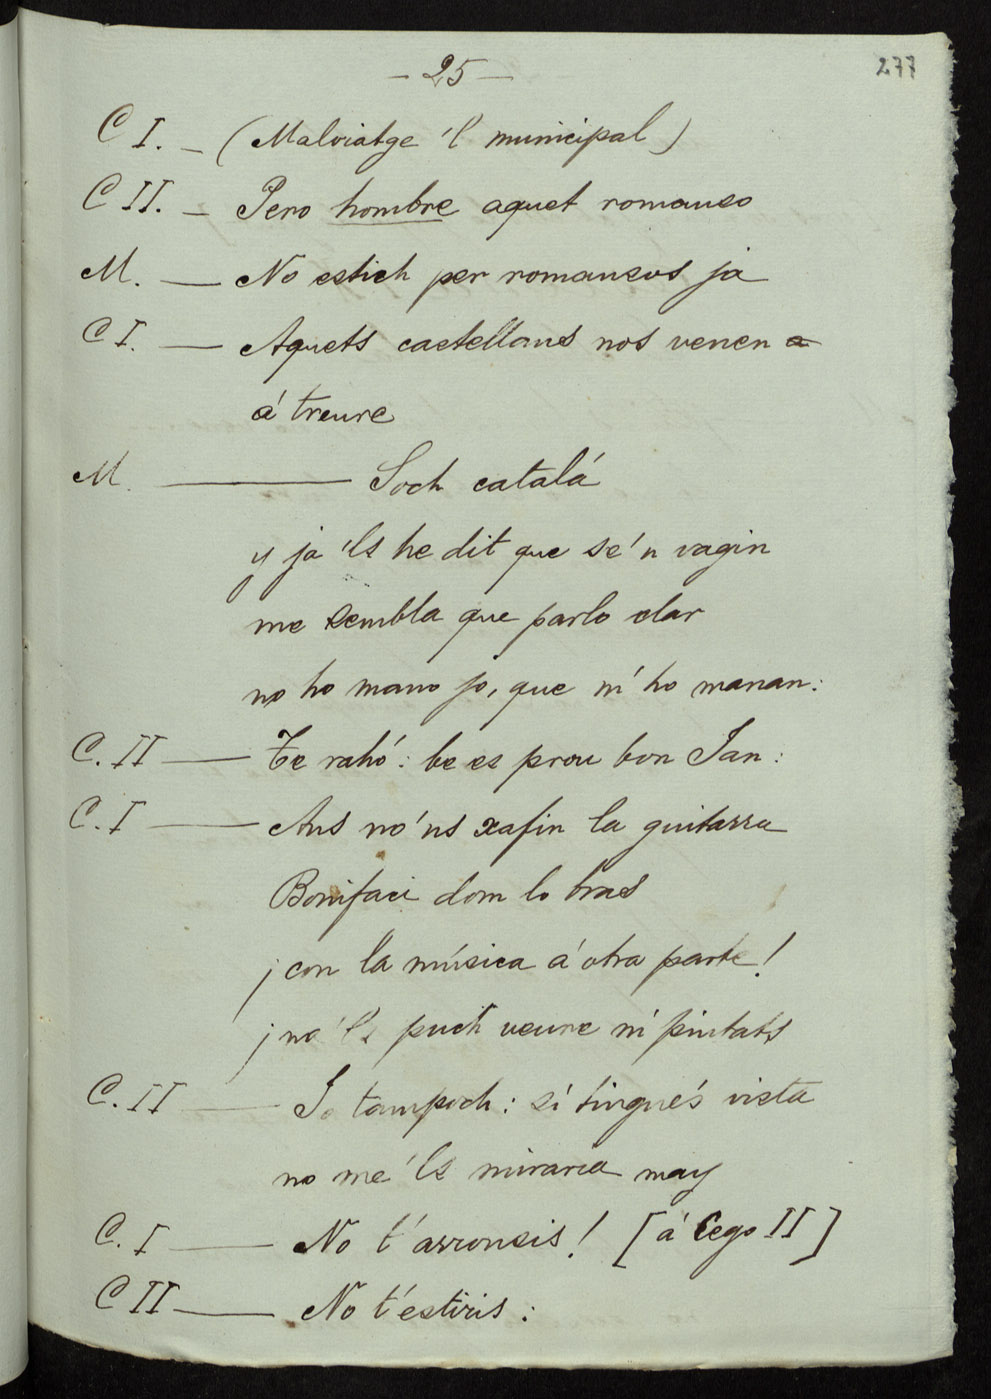 - 25 -
277
C I. - (Malviatge 'l municipal)
C II. - Pero hombre aquet romanso
M. — No estich per romansos ja
C I. — Aquets castellans nos venen a
á treure
M. — Soch catalá
y ja 'ls he dit que se'n vagin
me sembla que parlo clar
no ho mano jo, que m'ho manan:
C. II — Te rahó: be es prou bon Jan:
C. I — Ans no'ns xafin la guitarra
Bonifaci dom lo bras
¡con la música á otra parte!
¡no'ls puch veure ni pintats
C. II — Jo tampoch: si tingués vista
no me'ls miraria may
C. I — No t'arronsis! [á Cego II]
C II — No t'estiris: